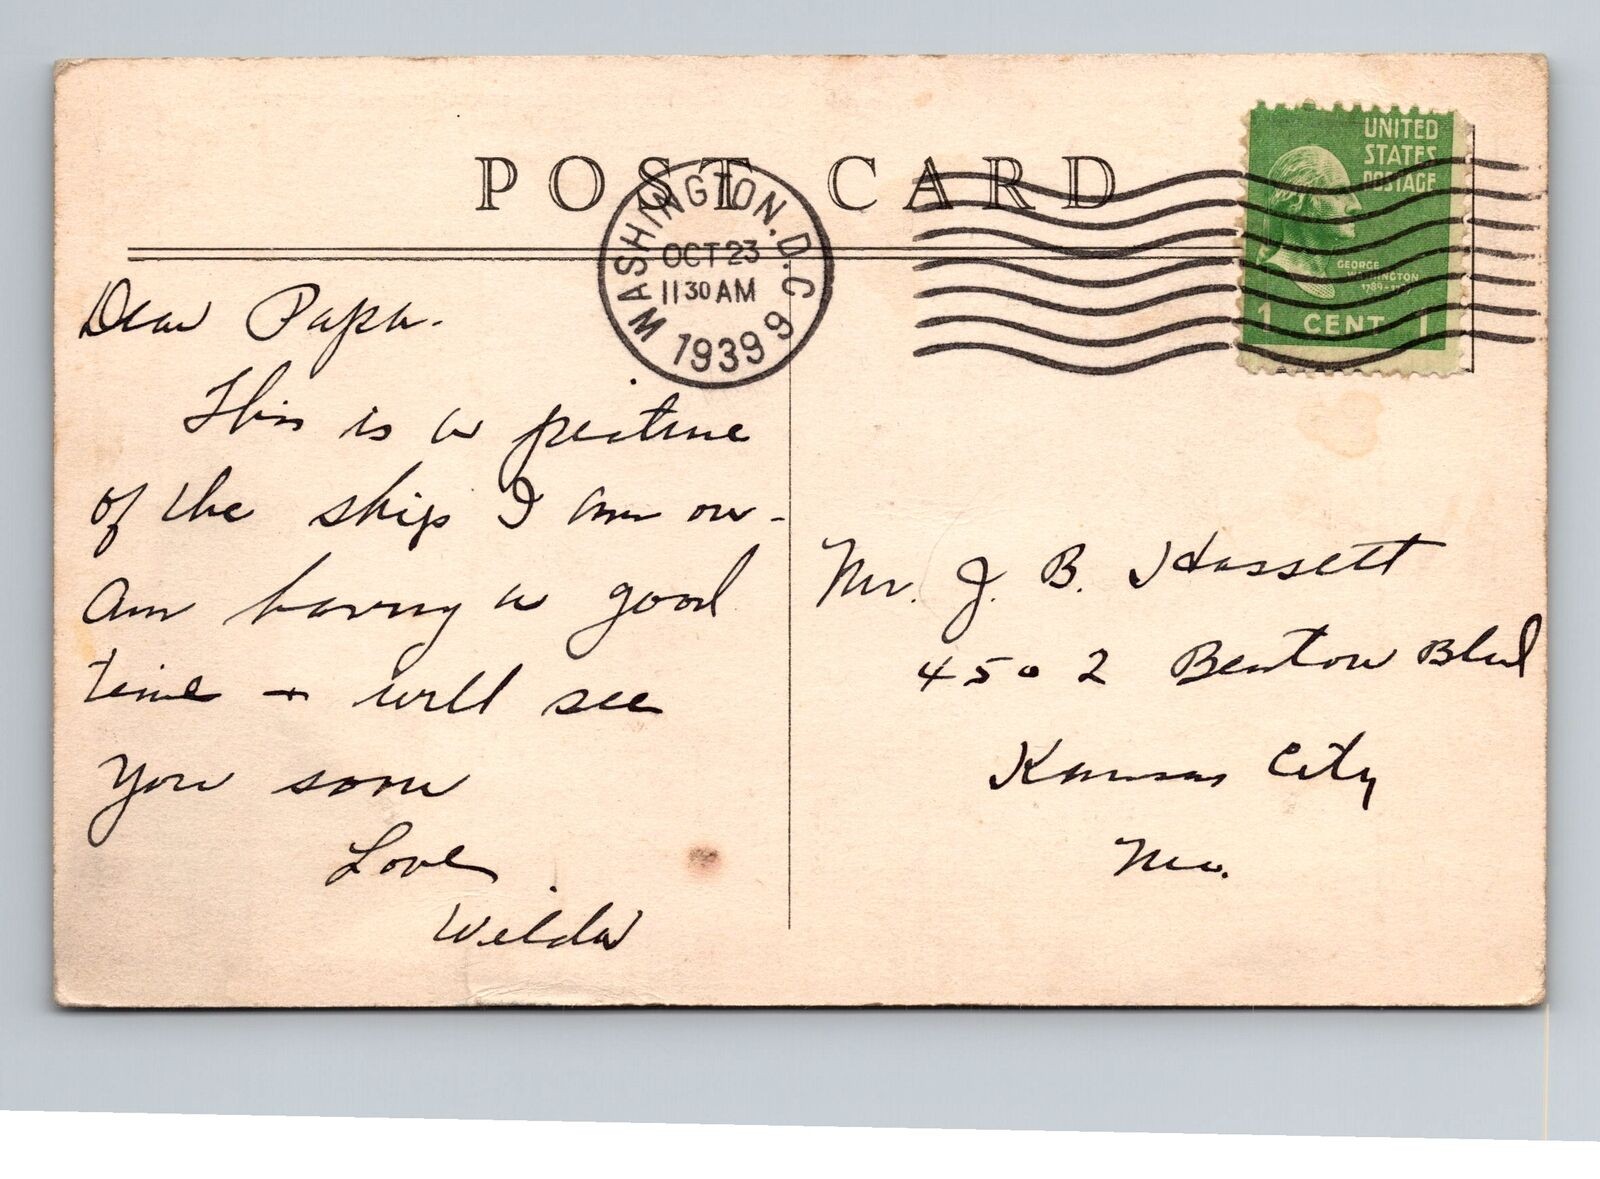 POST CARD
WASHINGTON, D.C. 9
OCT 23
11 30 AM
1939
UNITED
STATES
POSTAGE
GEORGE
WASHINGTON
1789-1797
1 CENT 1
Dear Papa.
This is a picture
of the ship I am on -
Am having a good
time + will see
you soon
Love
Wilda
Mr. J. B. Hassett
4502 Benton Blvd
Kansas City
Mo.